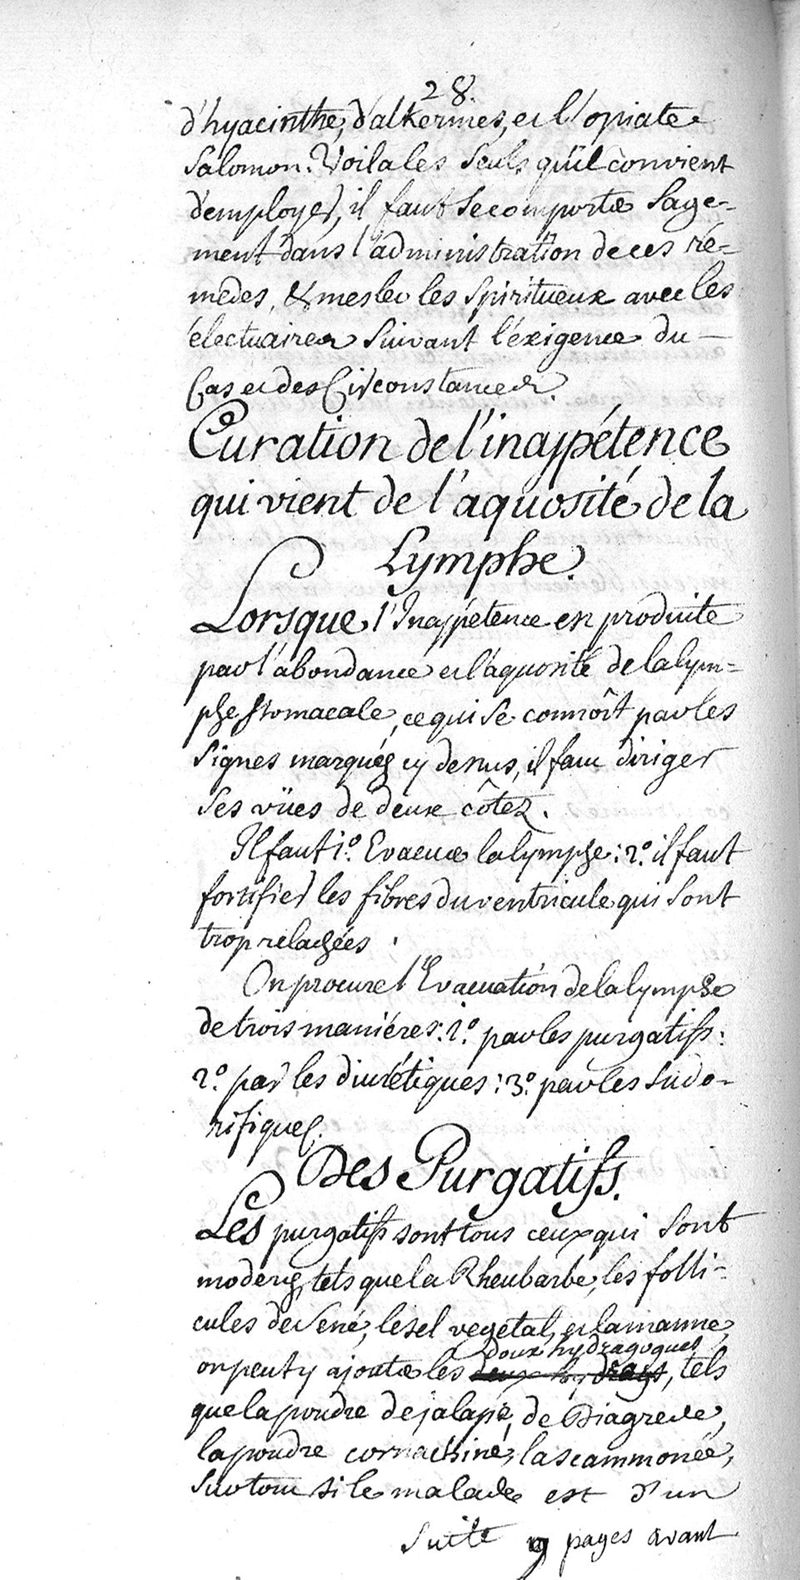 28.
d'hyacinthe, d'alkermes, et l'opiate
Salomon. Voila les seuls qu'il convient
d'employer, il faut se comporter sage-
ment dans l'administration de ces ré-
medes, & mesler les spiritueux avec les
électuaires suivant l'éxigence du
Cas et des Circonstances.
Curation de l'inappétence
qui vient de l'aquosité de la
Lymphe.
Lorsque l'Inappétence est produite
par l'abondance et l'aquosité de la lym-
phe stomacale, ce qui se connoît par les
signes marqués cy dessus, il faut diriger
ses vües de deux côtez.
Il faut 1.º Evacuer la lymphe: 2.º il faut
fortifier les fibres du ventricule qui sont
trop relachées.
On procure l'Evacuation de la lymphe
de trois maniéres: 1.º par les purgatifs:
2.º par les diurétiques: 3.º par les sudo-
rifiques.
Des Purgatifs.
Les purgatifs sont tous ceux qui sont
moderés, tels que la Rheubarbe, les folli-
cules de Sené, le sel vegetal, et la manne,
doux hydragogues
on peut y ajouter les, tels
que la poudre de jalape, de Diagrede,
la poudre cornachine, la scammonée,
surtout si le malade est d'un
suite 9 pages avant